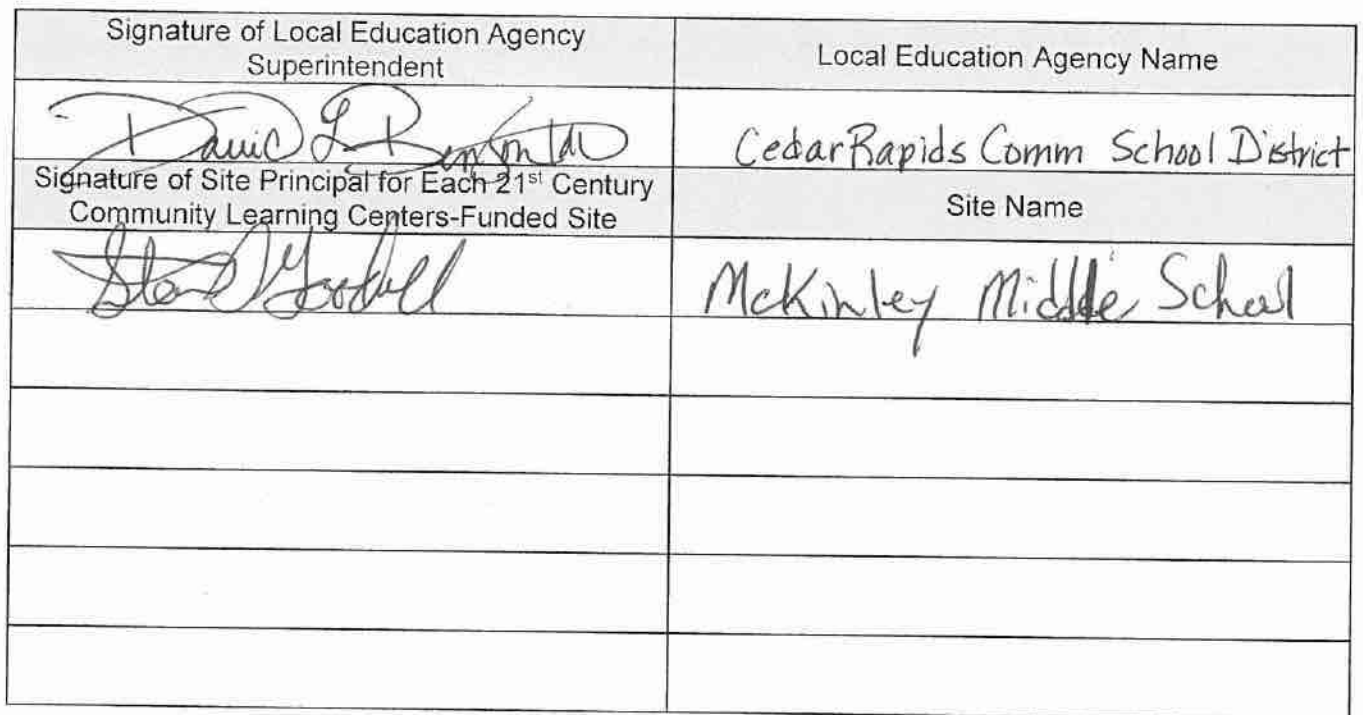 Signature of Local Education Agency
Superintendent
Local Education Agency Name
David L
Cedar Rapids Comm School District
Signature of Site Principal for Each 21st Century
Community Learning Centers-Funded Site
Site Name
McKinley Middle School